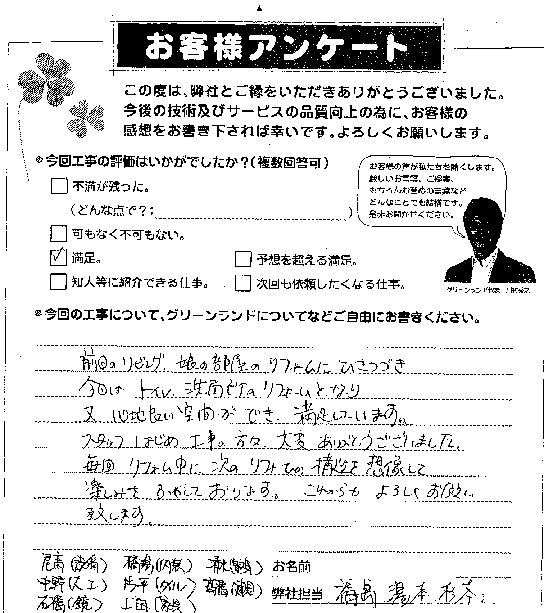 お客様アンケート
この度は、弊社とご縁をいただきありがとうございました。
今後の技術及びサービスの品質向上の為に、お客様の
感想をお書き下されば幸いです。よろしくお願いします。
※今回工事の評価はいかがでしたか？(複数回答可)
不満が残った。
(どんな点で？: )
可もなく不可もない。
満足。
予想を超える満足。
知人等に紹介できる仕事。
次回も依頼したくなる仕事。
お客様の声が私たちを熱くします。
厳しいお言葉、ご提案、
もちろんお褒めの言葉など
どんなことでも結構です。
是非お聞かせください。
※今回の工事について、グリーンランドについてなどご自由にお書きください。
前回のリビング、娘の部屋のリフォームにひきつづき
今回は トイレ、洗面所のリフォームとなり
又 心地良い空間ができ、満足しています。
スタッフはじめ 工事の方々、大変 ありがとうございました。
毎回 リフォーム中に次のリフォームの 構想を想像して
楽しみを ふかしております。これからも よろしくお願い
致します。
お名前
弊社担当 福島 湯本